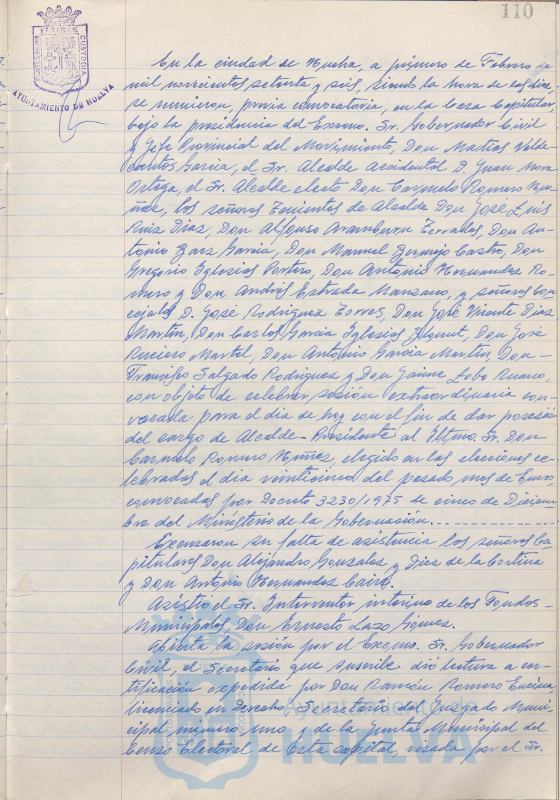 110
AYUNTAMIENTO DE HUELVA
En la ciudad de Huelva, a primero de Febrero de
mil novecientos setenta y seis, siendo la hora de las diez,
se reunieron, previa convocatoria, en la Casa Capitular,
bajo la presidencia del Excmo. Sr. Gobernador Civil
y Jefe Provincial del Movimiento, Don Matías Valde-
cantos García, el Sr. Alcalde Accidental D. Juan Mora
Ortega, el Sr. Alcalde electo Don Carmelo Romero Nú-
ñez, los señores Tenientes de Alcalde Don José Luis
Ruiz Díaz, Don Alfonso Aramburu Terrades, Don An-
tonio García, Don Manuel Bermejo Castro, Don
Gregorio Iglesias Portero, Don Antonio Hernandez Ro-
mero y Don Andrés Estrada Manzano, y señores Con-
cejales D. José Rodriguez Torres, Don José Vicente Diaz
Martín, Don Carlos García Iglesias, Don José
Martel, Don Antonio García Martín, Don
Francisco Salgado Rodriguez y Don Jaime Lobo
con objeto de celebrar sesión extraordinaria con-
vocada para el día de hoy con el fin de dar posesión
del cargo de Alcalde-Presidente al Iltmo. Sr. Don
Carmelo Romero Núñez elegido en las elecciones ce-
lebradas el día veinticinco del pasado mes de Enero,
convocadas por Decreto 3230/1975 de cinco de Diciem-
bre del Ministerio de la Gobernación.
Excusaron su falta de asistencia los señores Ca-
pitulares Don Alejandro Gonzalez y Diez de la Cortina
y Don Antonio Hernandez
Asistió el Sr. Interventor interino de los Fondos
Municipales Don Ernesto Lazo Gómez.
Abierta la sesión por el Excmo. Sr. Gobernador
Civil, el Secretario que suscribe dió lectura a cer-
tificación expedida por Don Ramón Romero Encina
licenciado en Derecho, Secretario del Juzgado Muni-
cipal número uno y de la Junta Municipal del
Censo Electoral de esta capital visada por el Sr.
Ayuntamiento de
HUELVA